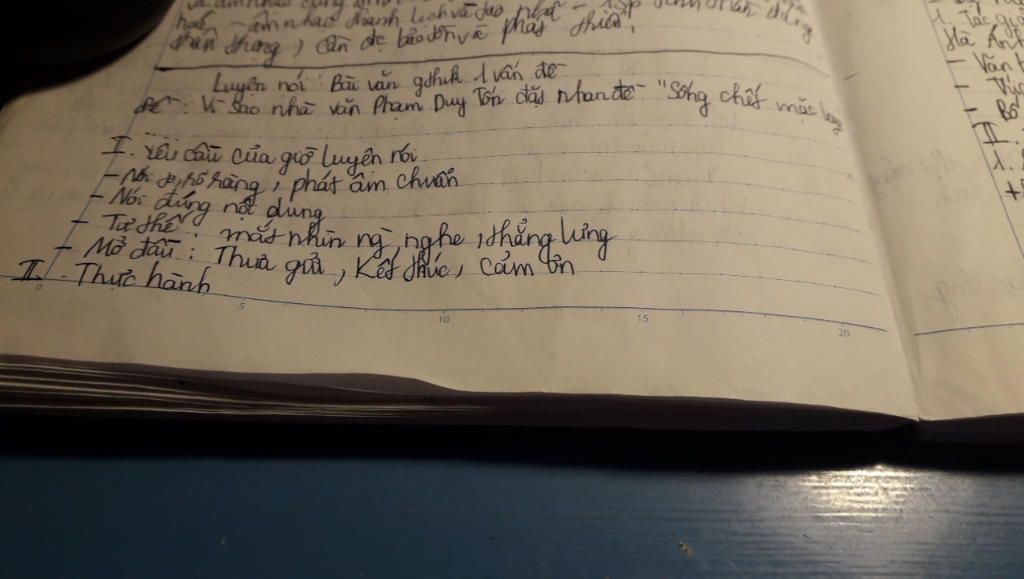 hoá – âm nhạc thanh lịch và tao nhã –
thần thượng, cần đc bảo tồn và phát triển.
Luyện nói: Bài văn gthik 1 vấn đề
Đề: Vì sao nhà văn Phạm Duy Tốn đặt nhan đề "Sống chết mặc bay
I. Yêu cầu của giờ luyện nói
- Nói to, rõ ràng, phát âm chuẩn
- Nói đúng nội dung
- Tư thế: mắt nhìn ng nghe, thẳng lưng
- Mở đầu: Thưa gửi, Kết thúc, cảm ơn
II. Thực hành
0 5 10 15 20
1. Tác giả
Hà Ánh
- Văn
-
- Bố
II.
1.
+